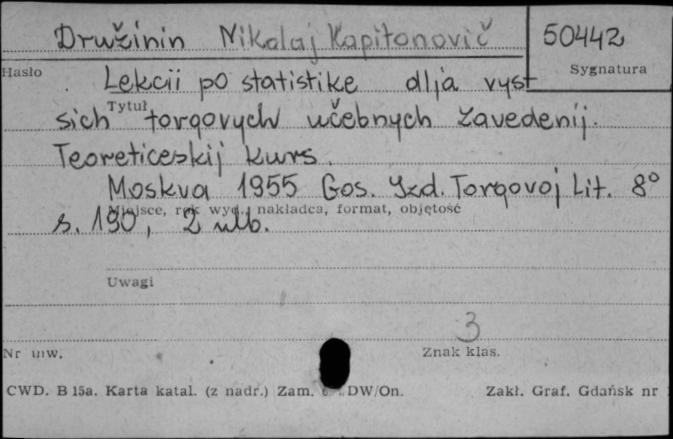 Družinin Nikolaj Kapitonovič 50442
Hasło Sygnatura
Lekcii po statistike dlja vyst
Tytuł
sich torgovych učebnych zavedenij.
Teoreticeskij kurs.
Moskva 1955 Gos. Izd. Torgovoj Lit. 8°
Miejsce, rok wyd., nakładca, format, objętość
s. 190, 2 nlb.
Uwagi
3
Nr inw. Znak klas.
CWD. B 15a. Karta katal. (z nadr.) Zam. DW/On. Zakł. Graf. Gdańsk nr